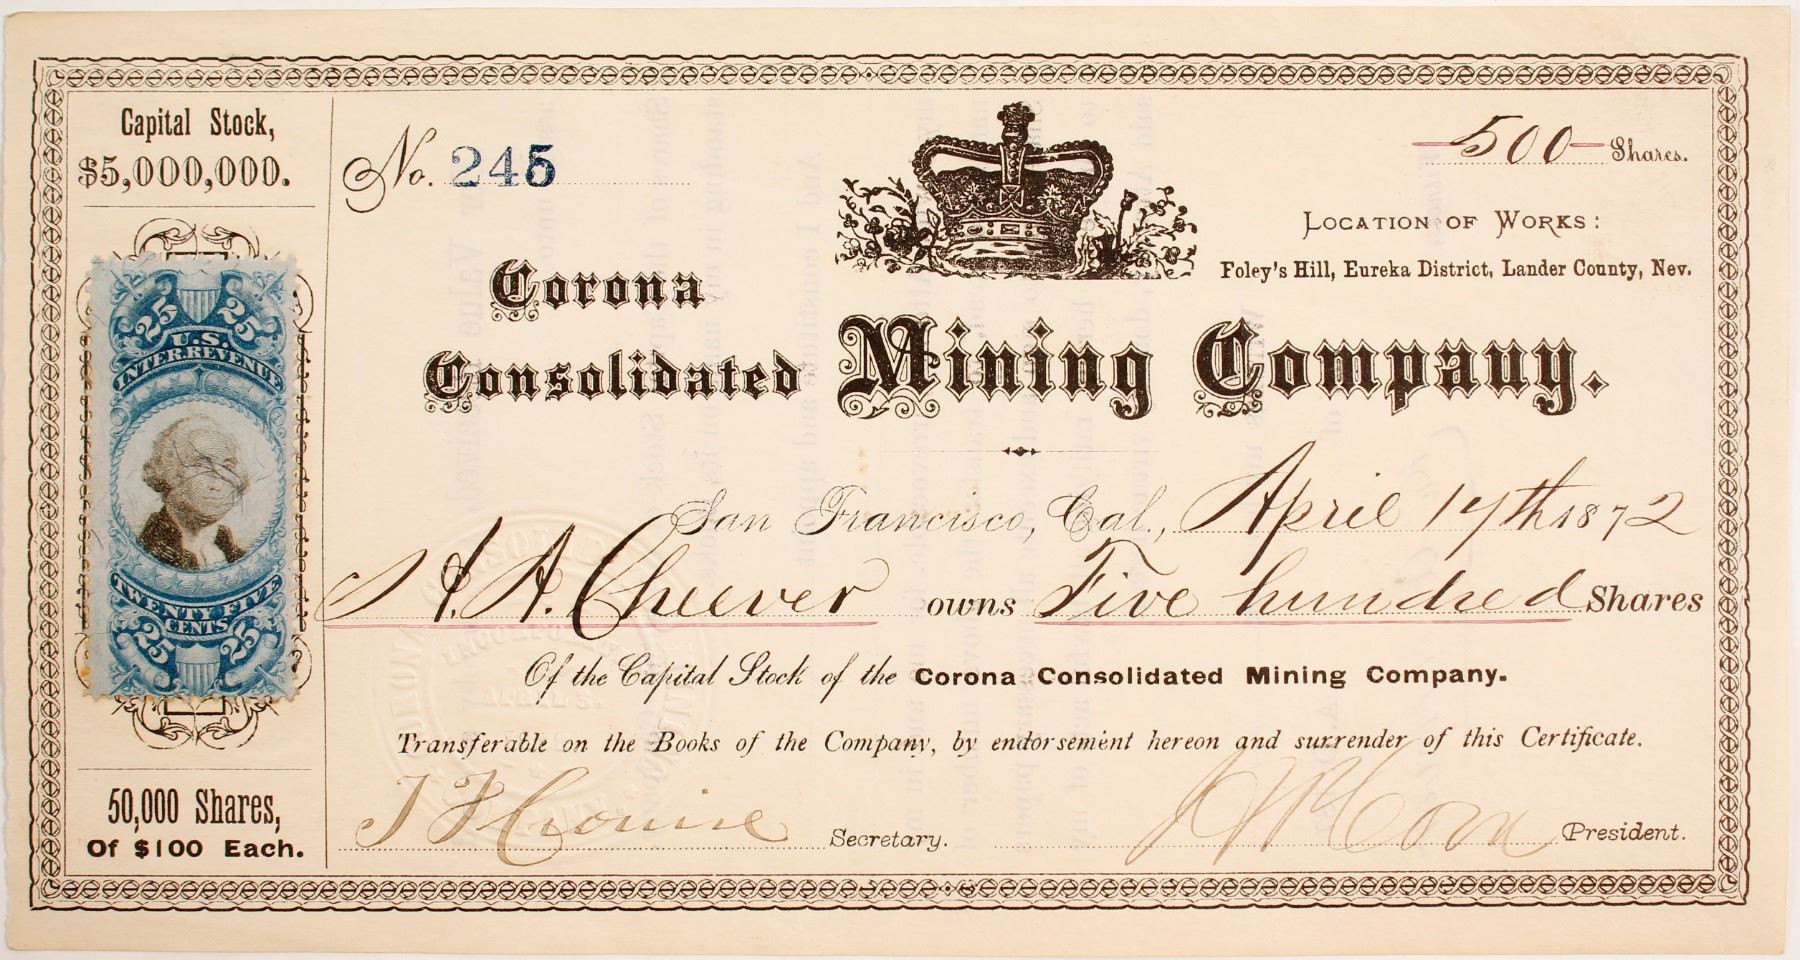 Capital Stock,
$5,000,000.
25 25
U.S.
INTER. REVENUE
TWENTY FIVE
CENTS
25 25
50,000 Shares,
Of $100 Each.
No. 245
500 Shares.
LOCATION OF WORKS:
Foley's Hill, Eureka District, Lander County, Nev.
Corona
Consolidated Mining Company.
San Francisco, Cal., April 17th 1872
H. A. Cheever owns Five hundred Shares
Of the Capital Stock of the Corona Consolidated Mining Company.
Transferable on the Books of the Company, by endorsement hereon and surrender of this Certificate.
Secretary.
President.